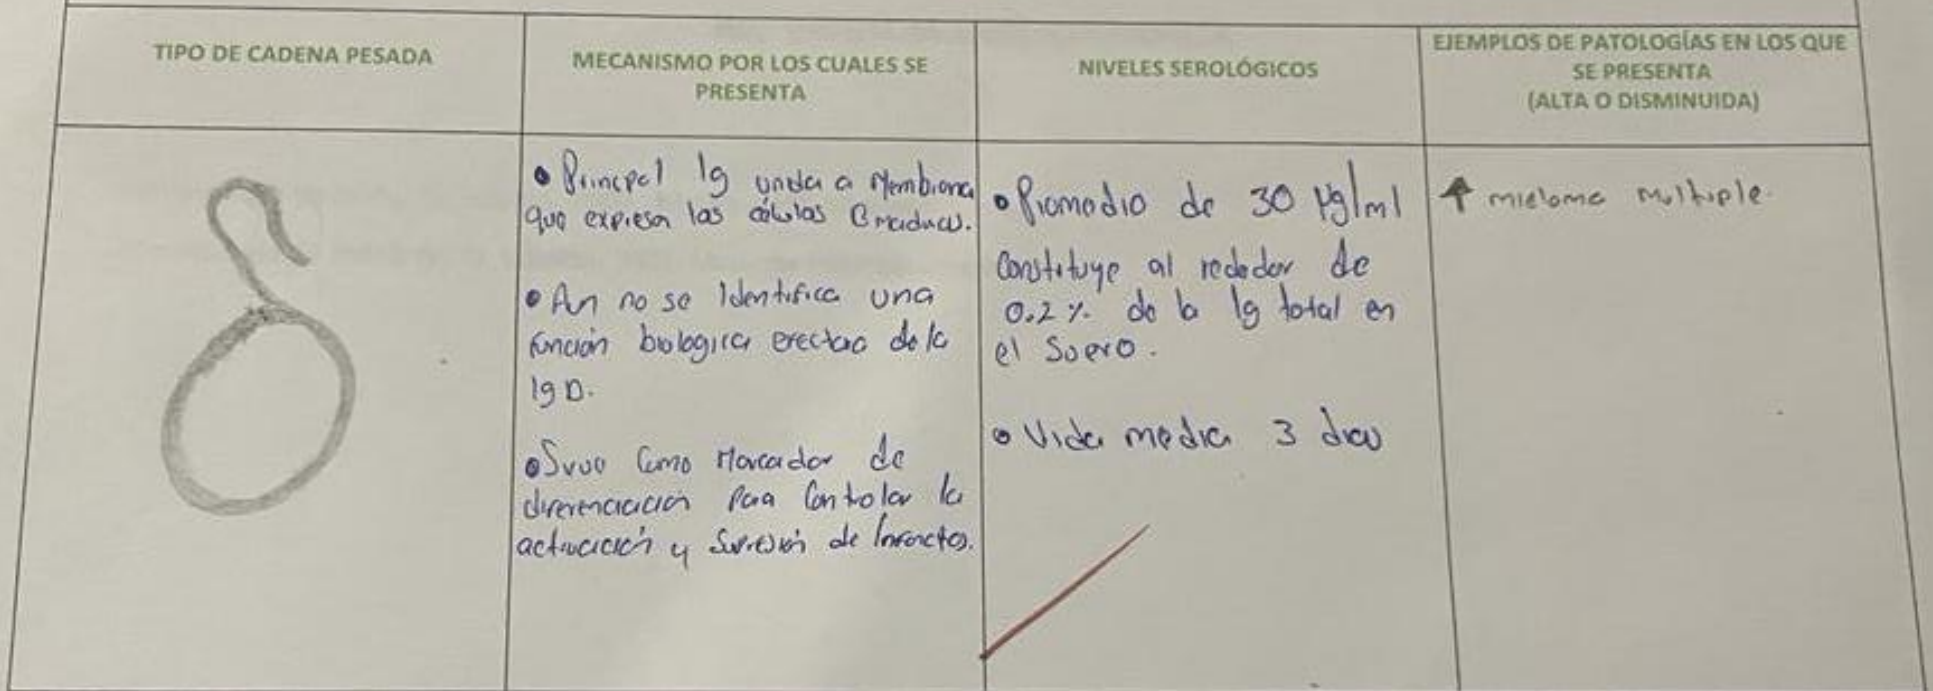 TIPO DE CADENA PESADA
MECANISMO POR LOS CUALES SE
PRESENTA
NIVELES SEROLÓGICOS
EJEMPLOS DE PATOLOGÍAS EN LOS QUE
SE PRESENTA
(ALTA O DISMINUIDA)
δ
• Principal Ig unida a Membrana
que expresa las células B maduras.
• Aun no se identifica una
función biologica efectora de la
Ig D.
• Sirve como Marcador de
diferenciación para Controlar la
activación y Supresión de linfocitos.
• Promedio de 30 μg/ml
Constituye al rededor de
0.2 % de la Ig total en
el Suero.
• Vida media 3 dias
↑ mieloma multiple.